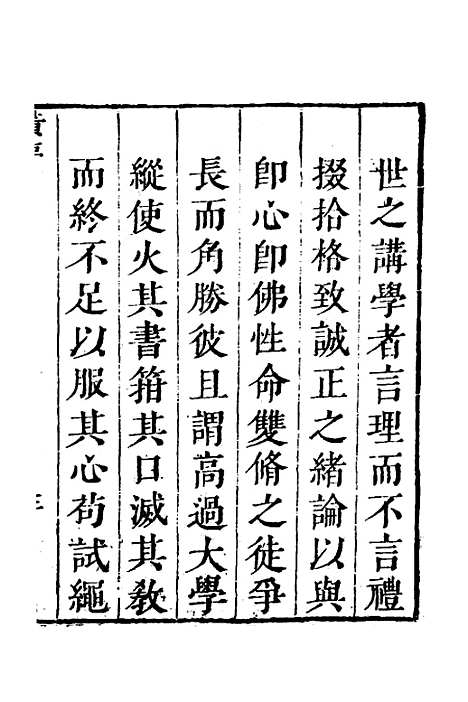 世之講學者言理而不言禮
掇拾格致誠正之緒論以與
卽心卽佛性命雙脩之徒爭
長而角勝彼且謂高過大學
縱使火其書箝其口滅其教
而終不足以服其心茍試繩